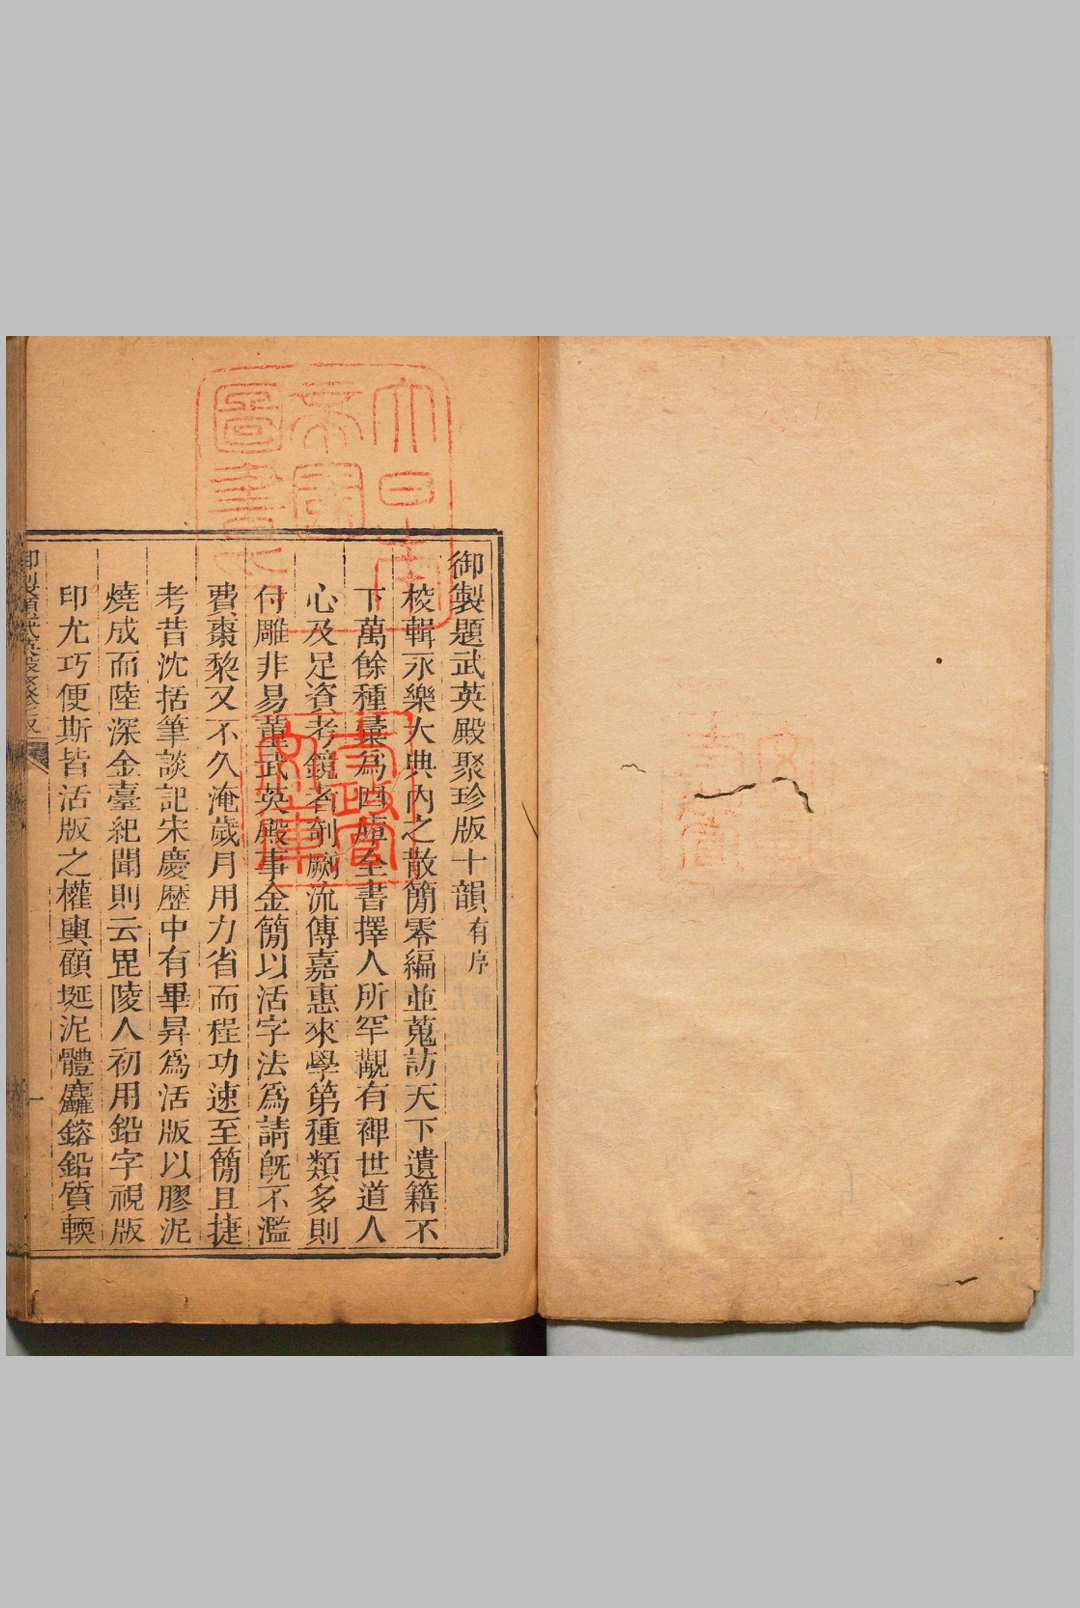 御製題武英殿聚珍版十韻有序
校輯永樂大典內之散簡零編並蒐訪天下遺籍不
下萬餘種彙為四庫全書擇人所罕觀有裨世道人
心及足資考鏡者剞劂流傳嘉惠來學第種類多則
付雕非易董武英殿事金簡以活字法為請旣不濫
費棗黎又不久淹歲月用力省而程功速至簡且捷
考昔沈括筆談記宋慶歷中有畢昇為活版以膠泥
燒成而陸深金臺紀聞則云毘陵人初用鉛字視版
印尤巧便斯皆活版之權輿顧埏泥體麤鎔鉛質輭
御製題武英殿聚珍版
一
大日本
帝國
圖書
太政官
文庫